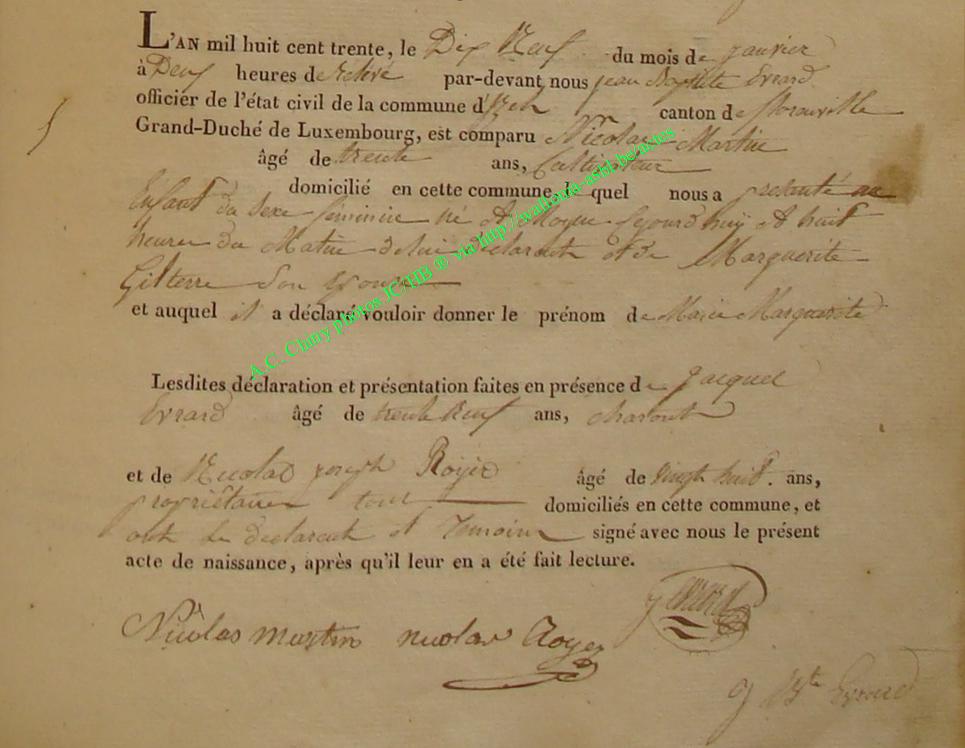 L'AN mil huit cent trente, le Dix Neuf du mois de janvier
à Neuf heures de relevé par-devant nous jean Baptiste Evrard
officier de l'état civil de la commune d'Izel canton de florenville
Grand-Duché de Luxembourg, est comparu Nicolas Martin
âgé de trente ans, Cultivateur
domicilié en cette commune, le quel nous a présenté un
Enfant du sexe feminin né A Moyen Cejourd'huy A huit
heures du Matin de lui declarant et de Marguerite
Gilterre Son Epouse
et auquel il a déclaré vouloir donner le prénom de Marie Marguerite
Lesdites déclaration et présentation faites en présence de Jacques
Evrard âgé de trente Neuf ans,
et de Nicolas joseph Royer âgé de vingt huit. ans,
propriétaire tous domiciliés en cette commune, et
ont le declarant et Temoins signé avec nous le présent
acte de naissance, après qu'il leur en a été fait lecture.
Nicolas martin nicolas Royer j Evrard
j Bte Evrard
A.C. Chiny photos JC/HB ® via http://wallonia-asbl.be/actes